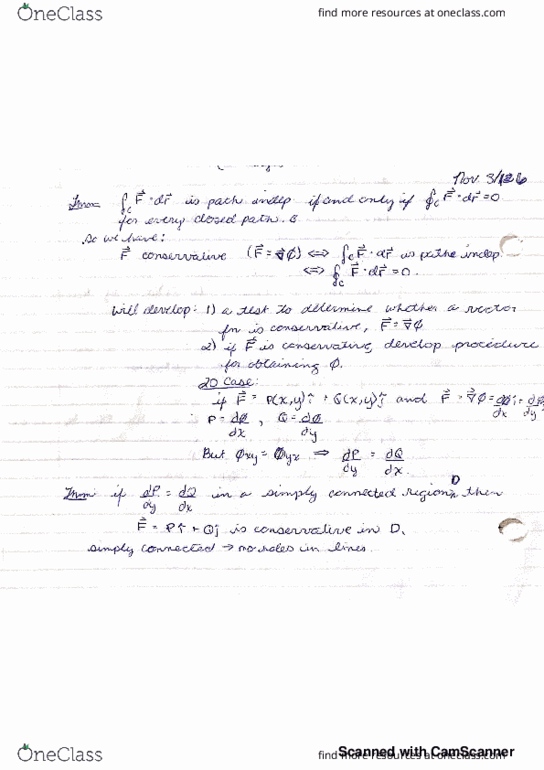 OneClass
find more resources at oneclass.com
Nov. 3/
Thm: ∫_C F⃗·dr⃗ is path indep if and only if ∮_C F⃗·dr⃗ = 0
for every closed path.
So we have:
F⃗ conservative (F⃗ = ∇⃗φ) ⟺ ∫_C F⃗·dr⃗ is path indep
⟺ ∮_C F⃗·dr⃗ = 0.
Will develop: 1) a test to determine whether a vector
fn is conservative, F⃗ = ∇⃗φ
2) if F⃗ is conservative, develop procedure
for obtaining φ.
2D Case:
if F⃗ = P(x,y)î + Q(x,y)ĵ and F⃗ = ∇⃗φ = dφ/dx î + dφ/dy
P = dφ/dx , Q = dφ/dy
But φxy = φyx ⟹ dP/dy = dQ/dx.
Thm: if dP/dy = dQ/dx in a simply connected region D, then
F⃗ = Pî + Qĵ is conservative in D.
simply connected → no holes in lines.
Scanned with CamScanner
OneClass
find more resources at oneclass.com